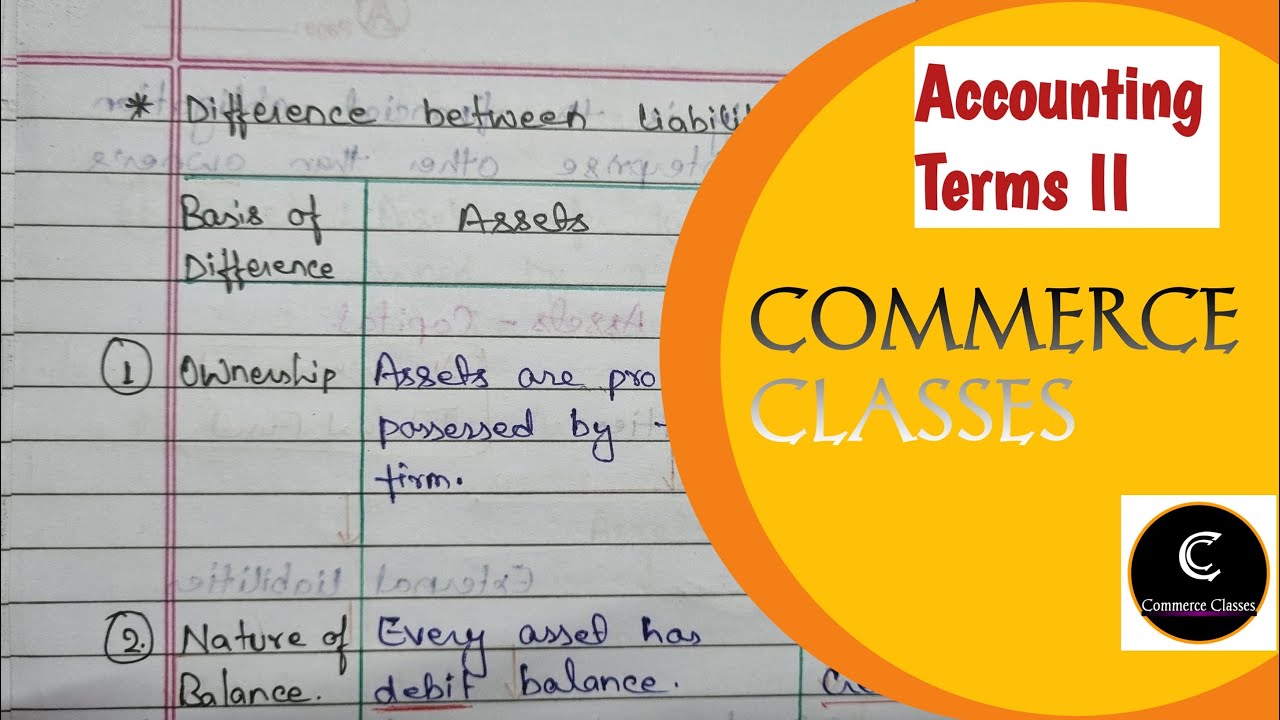 * Difference between liabili
Basis of Difference
Assets
① Ownership
Assets are pro
possessed by
firm.
② Nature of
Balance.
Every asset has
debit balance.
Accounting
Terms II
COMMERCE
CLASSES
C
Commerce Classes